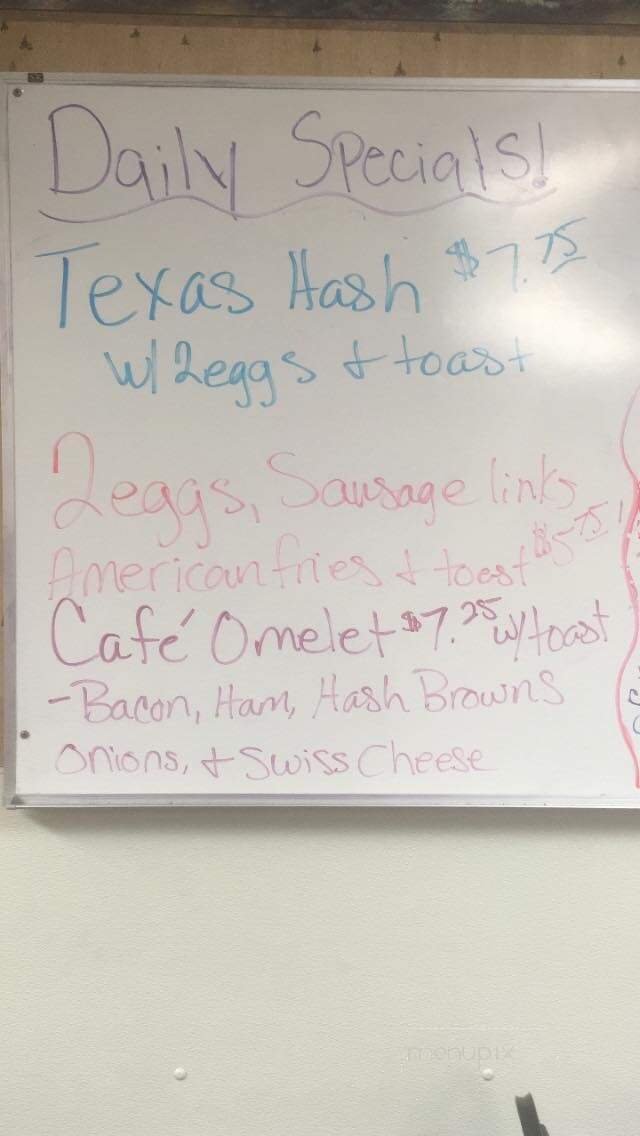 Daily Specials!
Texas Hash $7.75
w/ 2eggs + toast
2eggs, Sausage links
American fries + toast $5.75!
Café Omelet $7.25 w/ toast
- Bacon, Ham, Hash Browns
Onions, + Swiss Cheese
menupix